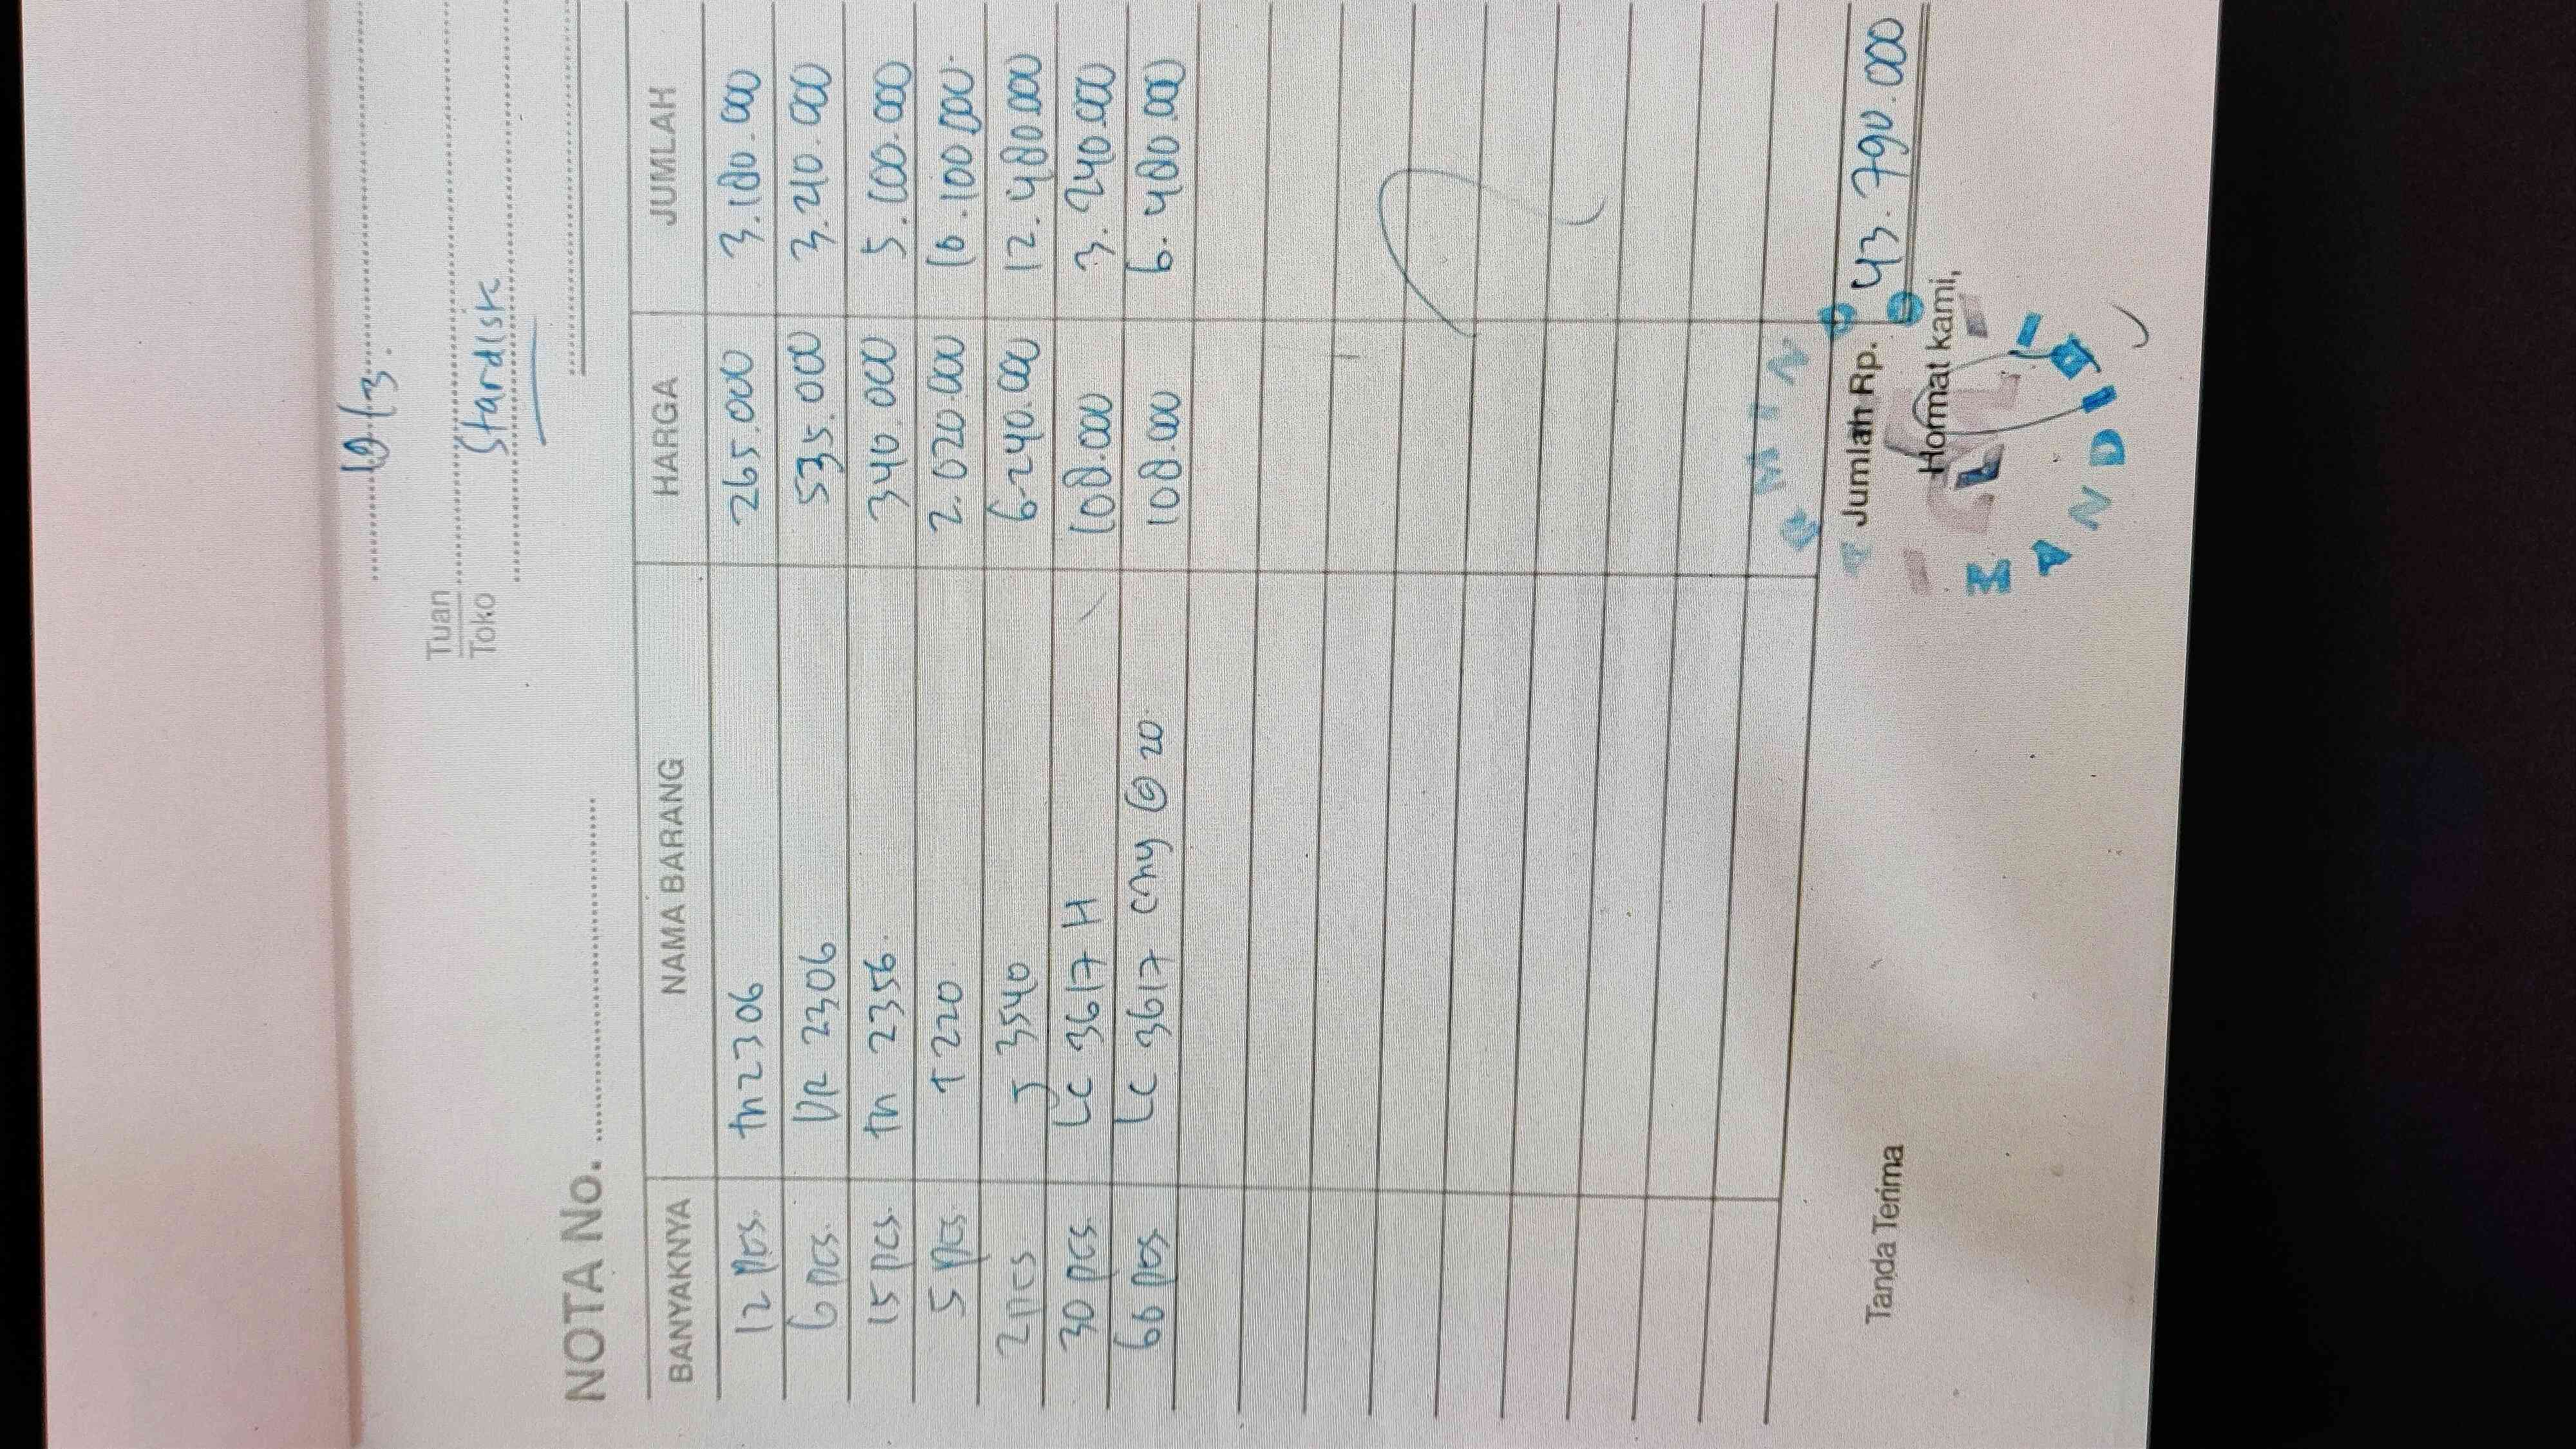 18/3.
Tuan
Toko Stardisk
NOTA No.
BANYAKNYA NAMA BARANG HARGA JUMLAH
12 pcs. tn 2306 265.000 3.180.000
6 pcs. DR 2306 535.000 3.210.000
15 pcs. tn 2356. 340.000 5.100.000
5 pcs. T 220 2.020.000 10.100.000.
2 pcs J 3540 6.240.000 12.480.000
30 pcs. LC 3617 H 108.000 3.240.000
60 pcs. LC 3617 cmy @ 20. 108.000 6.480.000
Jumlah Rp. 43.790.000
Tanda Terima Hormat kami,